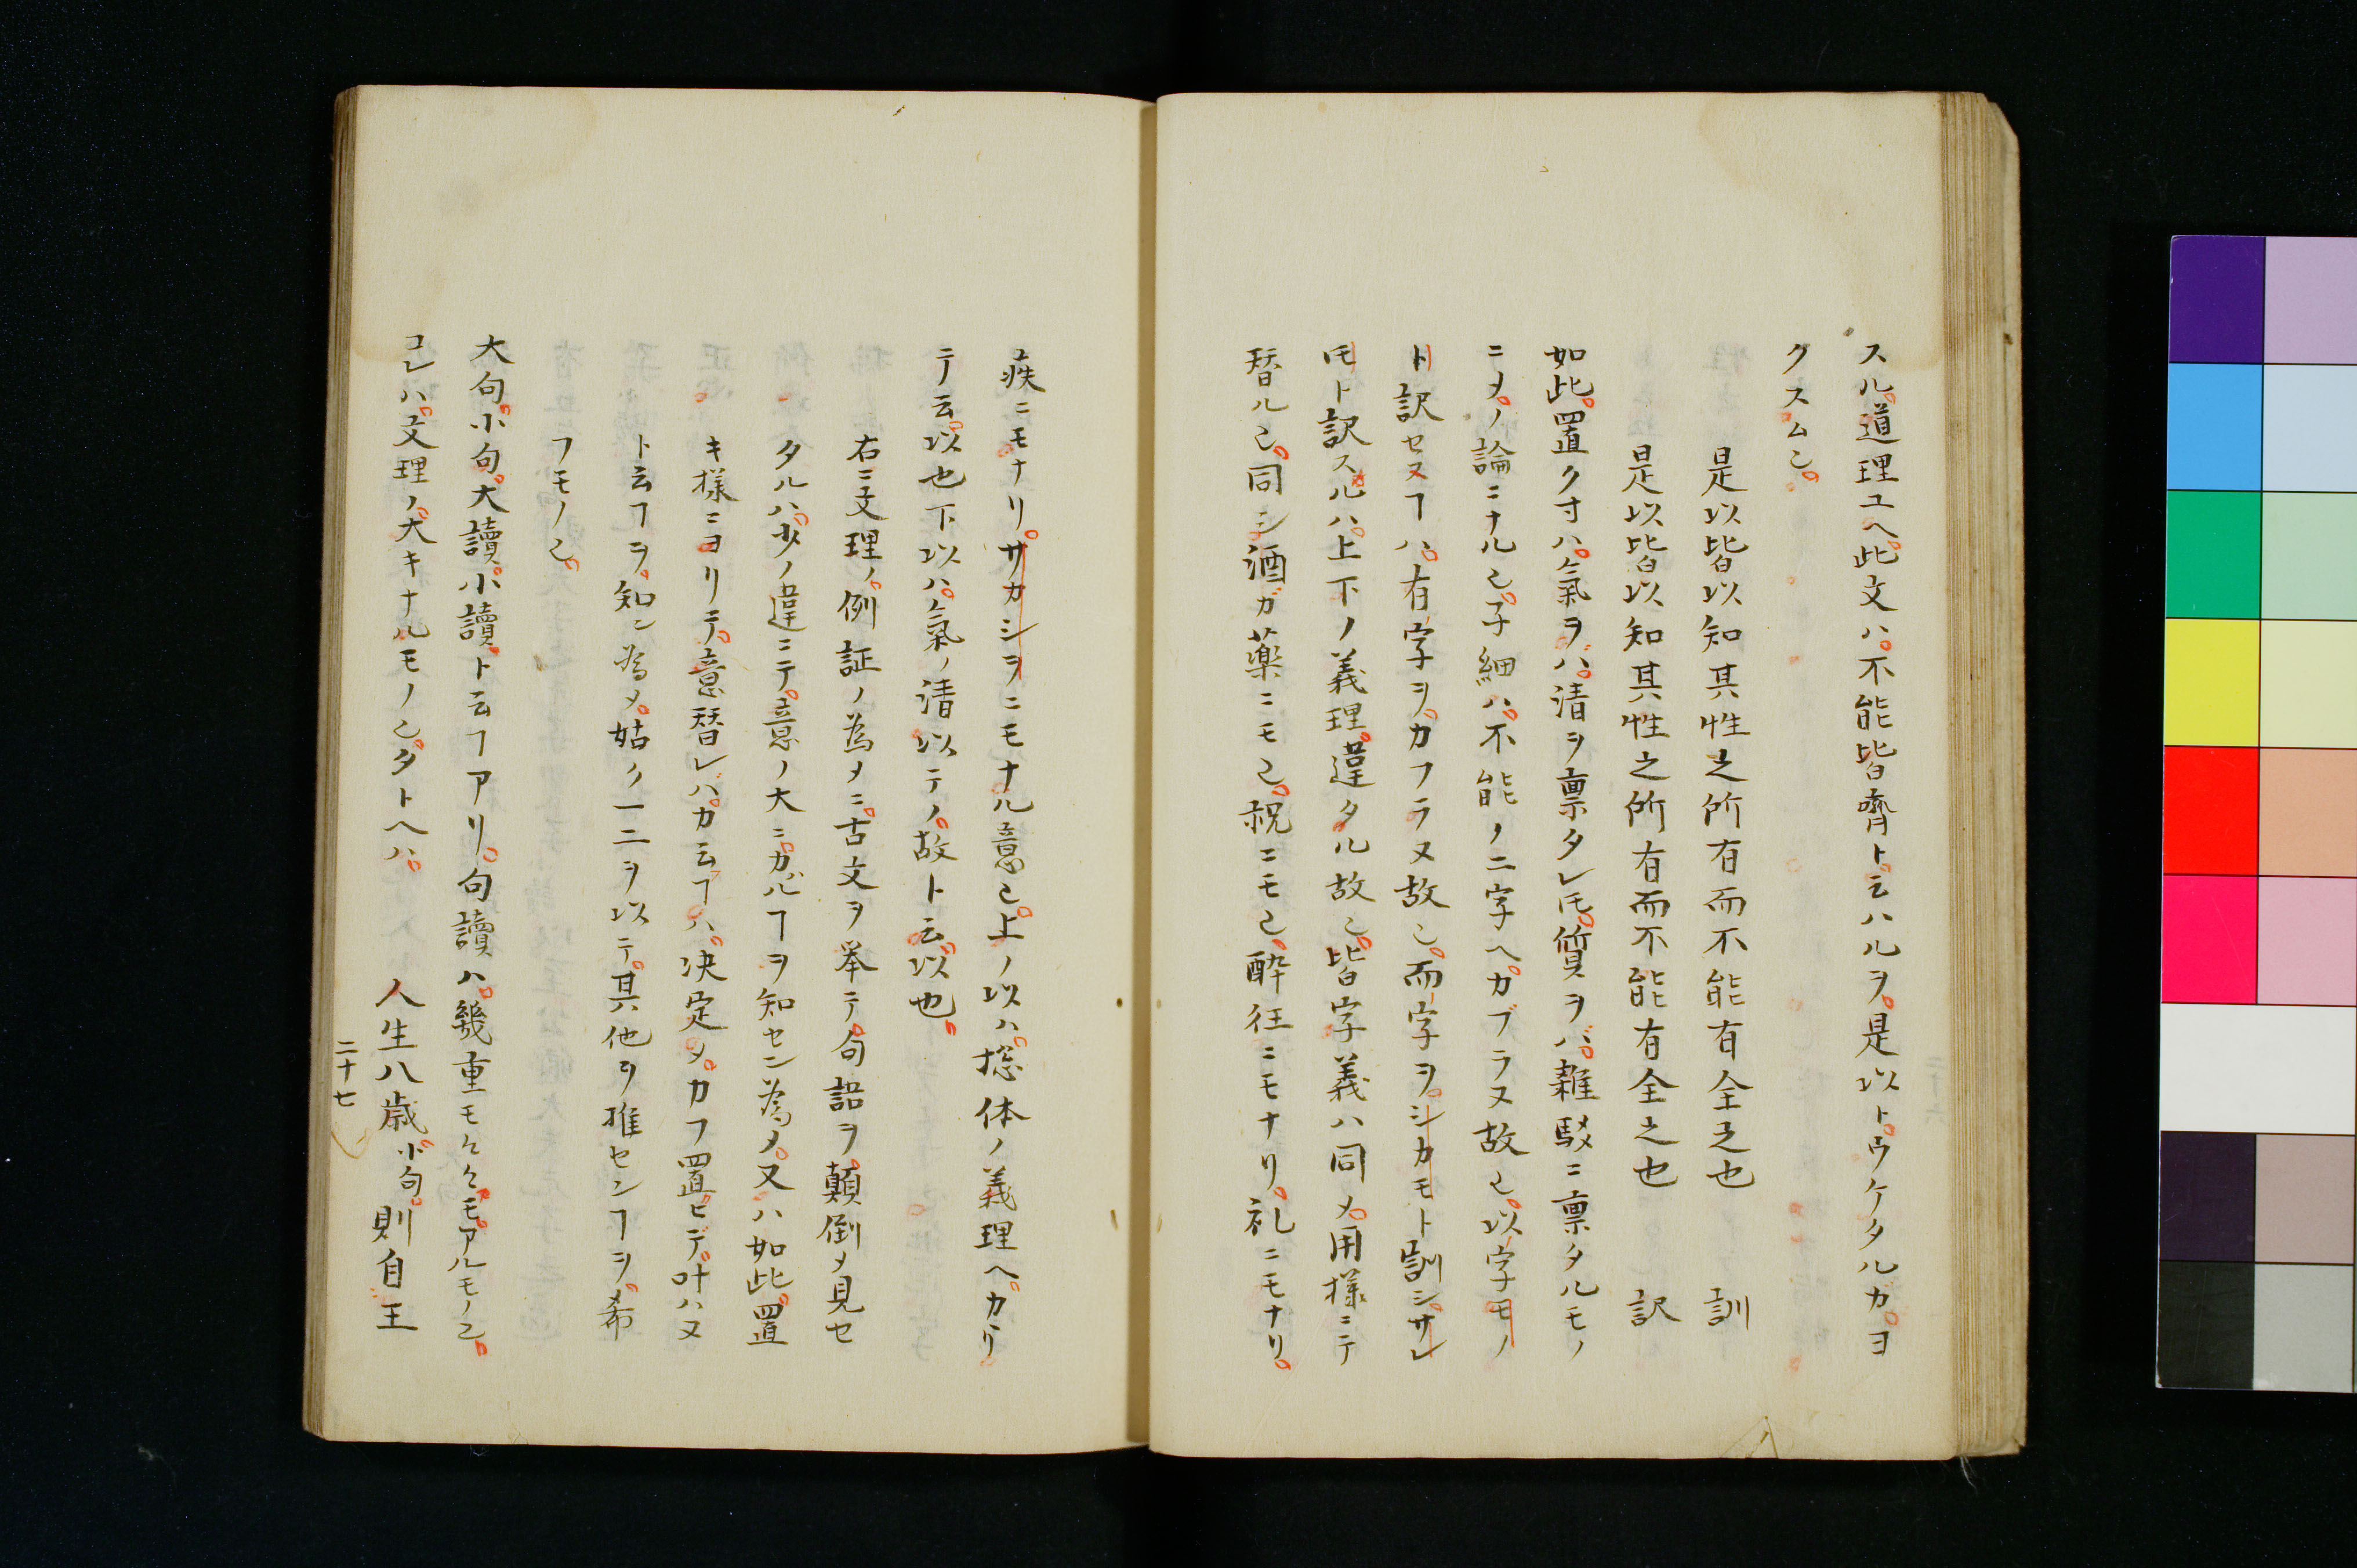 スル。道理ユヘ。此文ハ。不能皆齊ト。云ハルヲ。是以ト。ウケタルカ。ヨ
クスムヿ。
是以皆以知其性之所有而不能有全之也　訓
是以皆以知其性之所有而不能有全之也　訳
如此。置ク寸ハ。氣ヲバ。清ヲ禀タレ𪜈。質ヲバ。雜駁ニ禀タルモノ
ニメ。ノ論ニナル也。子細ハ。不能ノ二字ヘ。カブラヌ故也。以字モノ
ト訳セヌヿハ。有字ヲ。カフラヌ故也。而字ヲ。シカモト訓シ。サレ
𪜈ト訳スルハ。上下ノ義理。違タル故也。皆字義ハ同メ。用樣ニテ
替ル也。同シ酒ガ薬ニモ也。祝ニモ也。酔狂ニモナリ。礼ニモナリ。
疾ニモナリ。サカシヲニモナル意也。上ノ以ハ。揔体ノ義理ヘ。ガヽリ。
テ云。以也下以ハ。氣ノ清以テノ。故ト云。以也。
右ニ文理ノ。例証ノ為メニ。古文ヲ挙テ。句語ヲ。顛倒メ見セ
タルハ。少ノ違ニテ。意ノ大ニ。カハルヿヲ知セン為メ。又ハ如此。置
キ樣ニヨリテ。意替レバ。カ云ヿハ。决定メ。カフ置ヒデ。叶ハヌ
ト云ヿヲ。知ン為メ。姑ク一二ヲ以テ。其他ヲ推センヿヲ。希
フモノ也。
大句。小句。大讀。小讀。ト云ヿアリ。句讀ハ。幾重モ々々モ。アルモノ也。
コレハ。文理ノ。大キナルモノ也。タトヘハ。　人生八歳小句。則自王
二十七